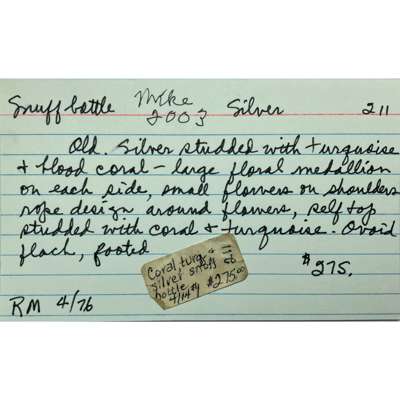 Snuff bottle Mike 2003 Silver 211
Old. Silver studded with turquoise
+ blood coral - large floral medallion
on each side, small flowers on shoulders
rope design around flowers, self top
studded with coral + turquoise. Ovoid
flach, footed
$275.
Coral turq +
silver snuff
bottle
$275.00
RM 4/76